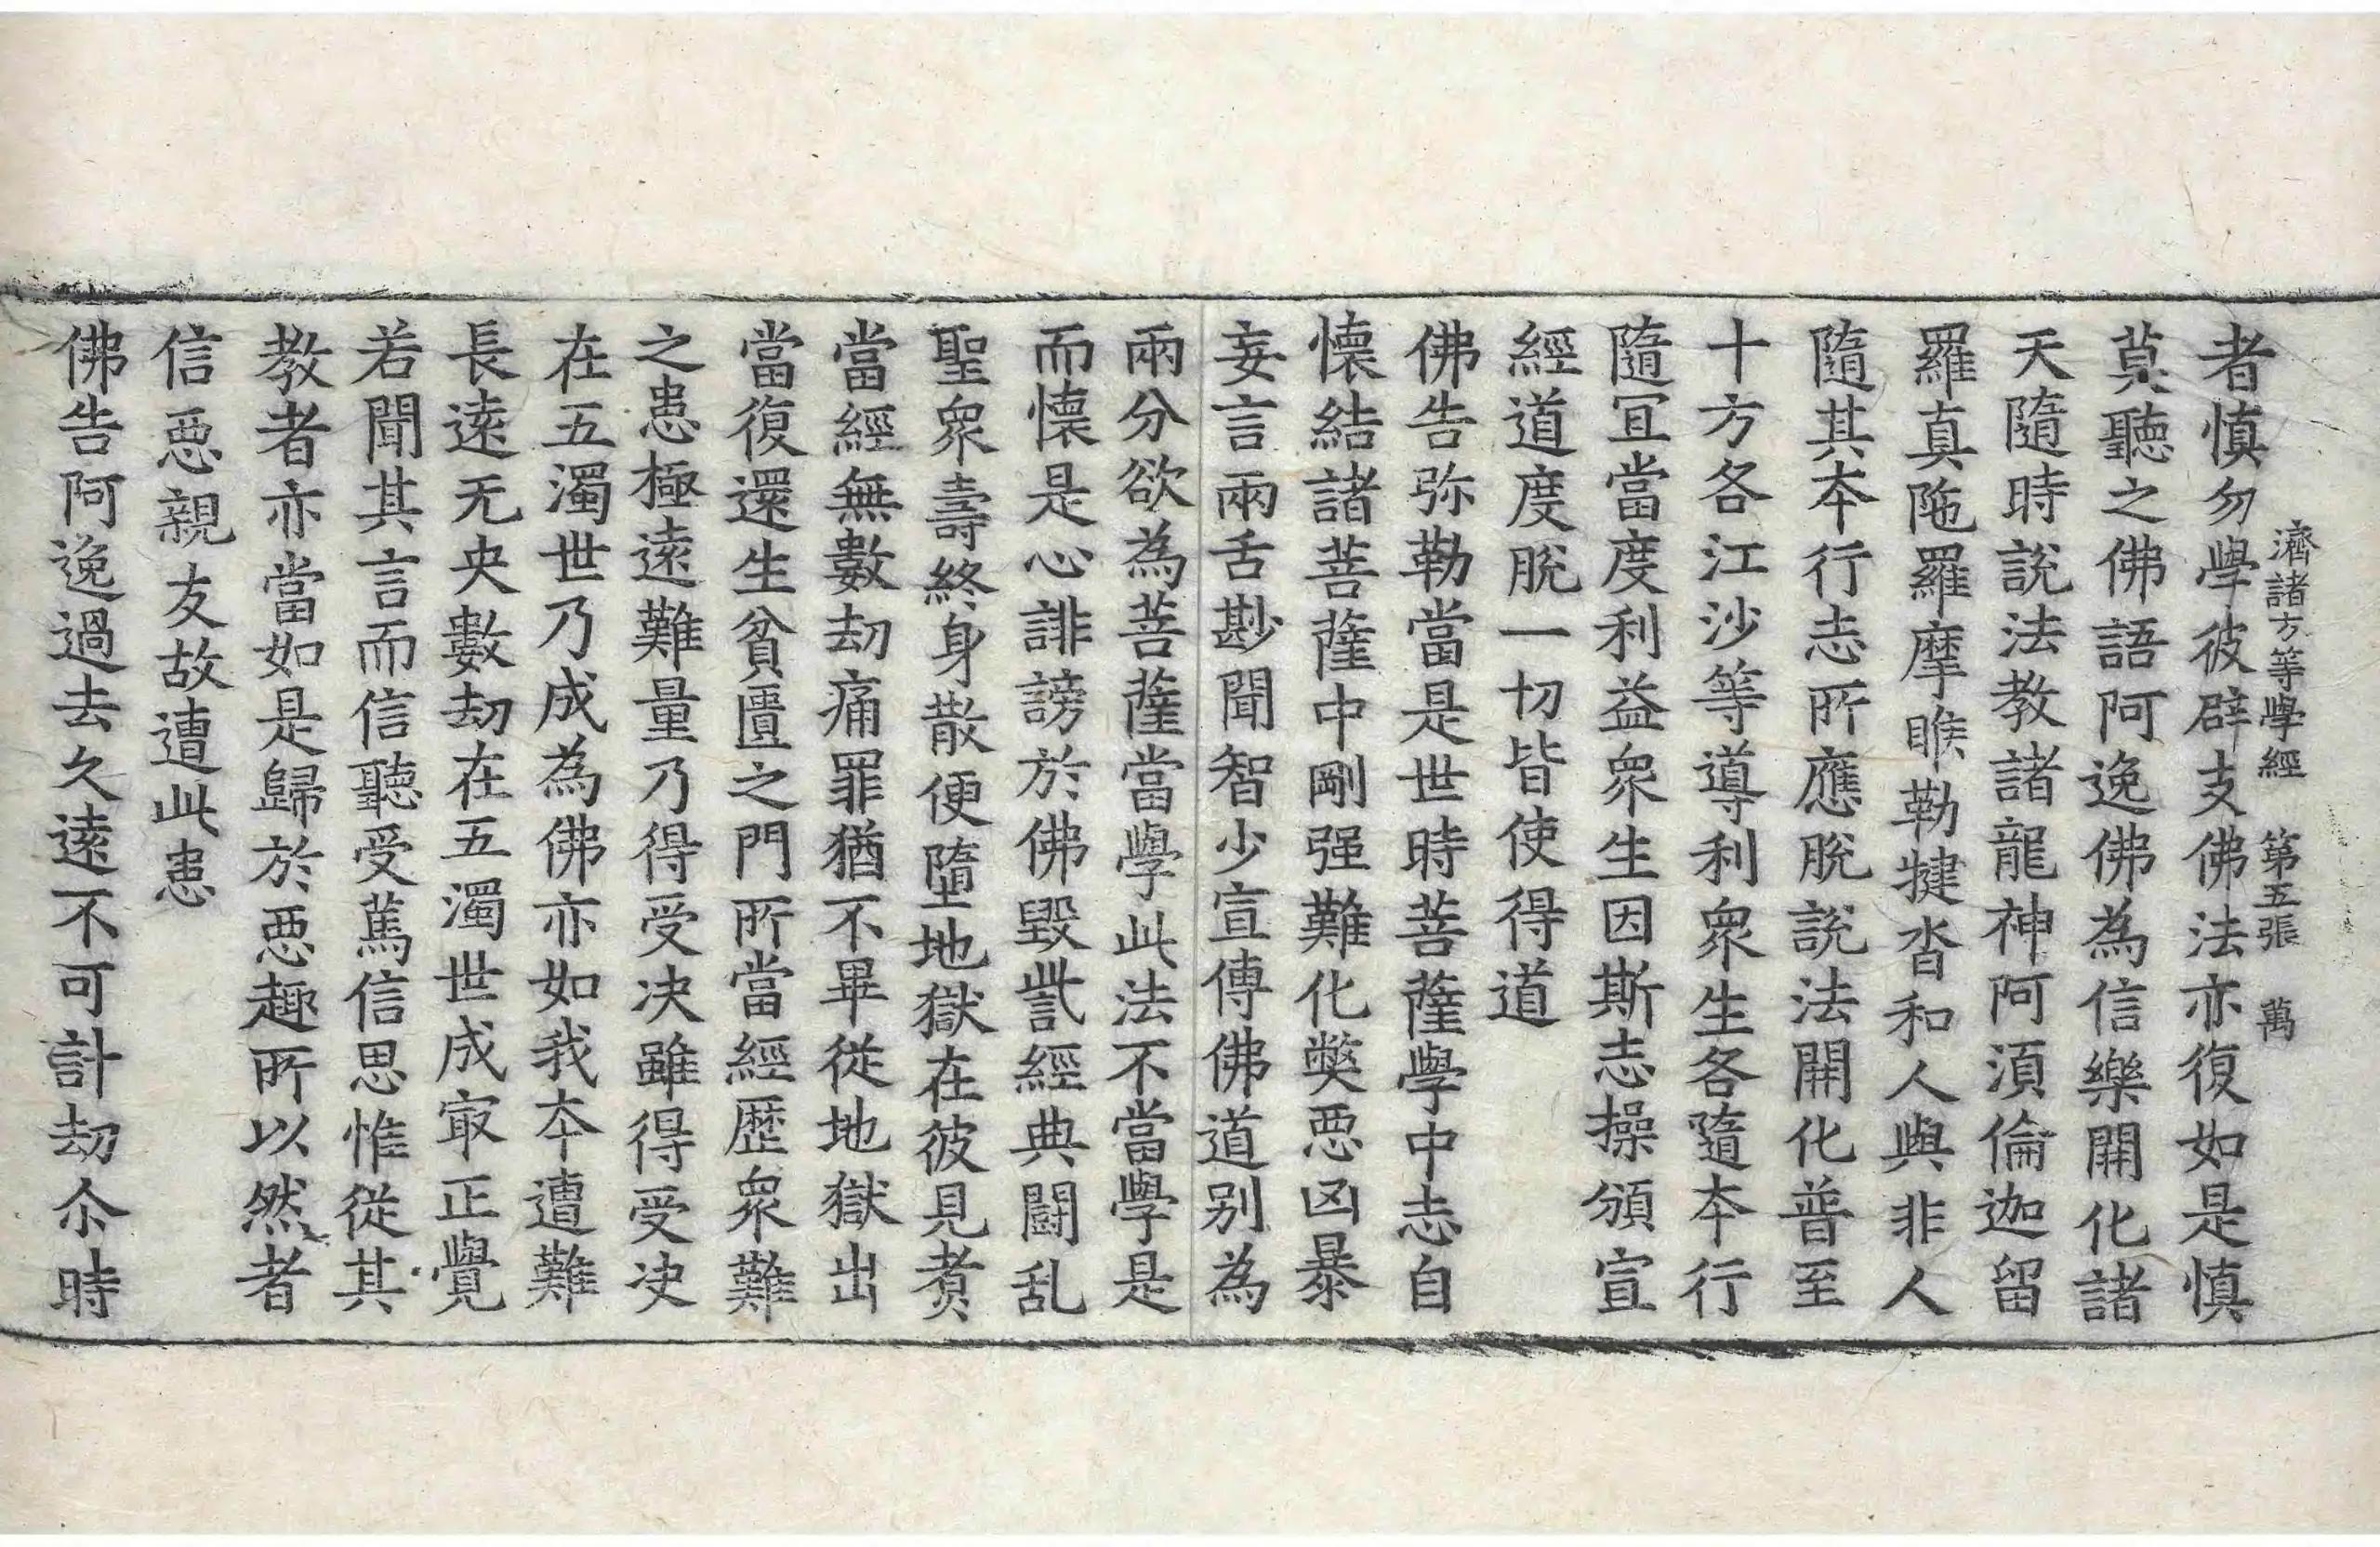 濟諸方等學經　第五張　萬
者慎勿學彼辟支佛法亦復如是慎
莫聽之佛語阿逸佛為信樂開化諸
天隨時說法教諸龍神阿湏倫迦留
羅真陁羅摩睺勒揵沓和人與非人
隨其夲行志所應脫說法開化普至
十方各江沙等導利衆生各隨夲行
隨冝當度利益衆生因斯志操頒宣
經道度脫一切皆使得道
佛告弥勒當是世時菩薩學中志自
懐結諸菩薩中剛强難化獘𢙣凶暴
妄言兩舌尠聞智少宣傳佛道别為
兩分欲為菩薩當學此法不當學是
而懐是心誹謗於佛毀訾經典鬪乱
聖衆壽終身散便墮地獄在彼見煑
當經無數劫痛罪猶不畢從地獄出
當復還生貧匱之門所當經歷衆難
之患極遠難量乃得受決雖得受决
在五濁世乃成為佛亦如我夲遭難
長遠无央數劫在五濁世成㝡正覺
若聞其言而信聽受篤信思惟從其
教者亦當如是歸於𢙣趣所以然者
信𢙣親友故遭此患
佛告阿逸過去久遠不可計劫尒時